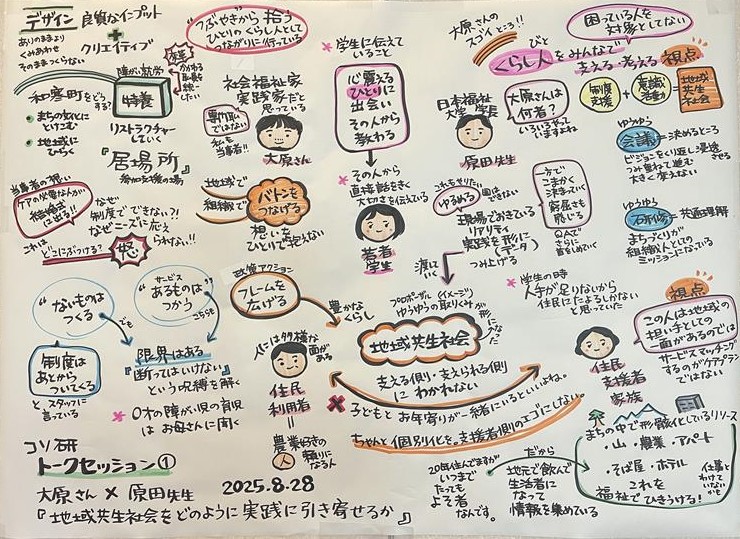 デザイン 良質なインプット
+
クリエイティブ
ありのままより
くみあわせ
そのままつくらない
"つぶやきから拾う
ひとりのくらし人として
つながりに行っている
和寒町をどうする?
まちの文化に
とけこむ
地域に
ひらく
障がい就労
特養
リストラクチャー
していく
『居場所』
参加支援の場
社会福祉家
実践家だと
思っている
専門职ではない
私も
当事者!!
大原さん
地域で
組織で
バトンを
つなげる
想いを
ひとりで抱えない
当事者の想い
ケアの必要な人が
結婚式
に出る!!
なぜ
制度でできない?!
なぜニーズに応え
られない!!
これは
どこにぶつける?
怒
学生に伝えて
いること
心震える
ひとりに
出会い
その人から
教わる
そのために
直接話をきく
大切さを伝えている
若者
学生
大原さんの
スゴイところ!!
困っている人を
対象としてない
くらし人をみんなで
びと
支える・考える 視点
制度
支援
+
意識
活動
=
地域
共生
社会
日本福祉
大学 学長
原田先生
大原さんは
何者?
いろいろやって
いますよね
会議=決めるところ
ビジョンをくり返し浸透させる
つみ重ねて進む
大きく変えない
これもせいたい
ゆるめる
国はできない
現場でおきている
リアリティ
実践を形に
(データ)
つみ上げる
一方で
こまかく
決まっていく
窮屈さも
感じる
QAで
さらに
首をしめていく
ゆうゆう
=共通理解
まちづくりが
組織人としての
ミッションになっている
政策アクション
フレームを
広げる
豊かな
くらし
プロポーザル(イメージ)
ゆうゆうの取りくみが
形になった
地域共生社会
渡した
学生の時
人手が足りないから
住民にたよるしかない
と思っていた
視点
この人は地域の
担い手としての
一面があるのでは
サービスマッチング
するのがケアプラン
ではない
住民
支援者
家族
"ないものは
つくる"
でも
サービス
"あるものは
つかう"
こちらも
制度は
あとから
ついてくる
と、スタッフに
言っている
限界はある
『断ってはいけない』
という呪縛を解く
0才の障がい児の育児
はお母さんに聞く
人には多様な
面がある
住民
利用者
=
農業好きの
人
頼りに
なる人
支える側・支えられる側
に わかれない
子どもとお年寄りが一緒にいるといいよね。
ちゃんと個別化を。支援者側のエゴにしない。
20年住んでますが
いつまで
たっても
よそ者
なんです。
だから
地元で飲んで
生活者に
なって
情報を集めている
まちの中で形骸化しているリソース
・山・農業・アパート
・そば屋・ホテル
これを
福祉でひきうける!
仕事と
わけて
いないかも
コソ研
トークセッション①
大原さん × 原田先生
2025.8.28
『地域共生社会をどのように実践に引き寄せるか』